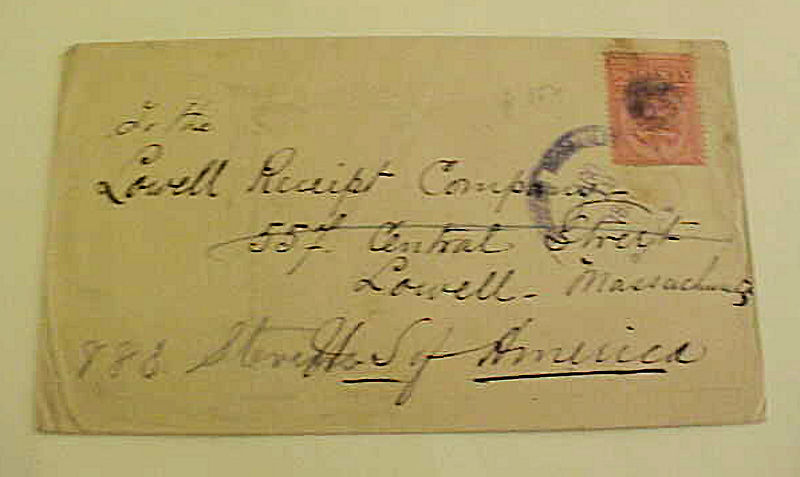 To the
Lowell Receipt Company
55 Central Street
Lowell - Massachusetts
886 Stevens U S of America